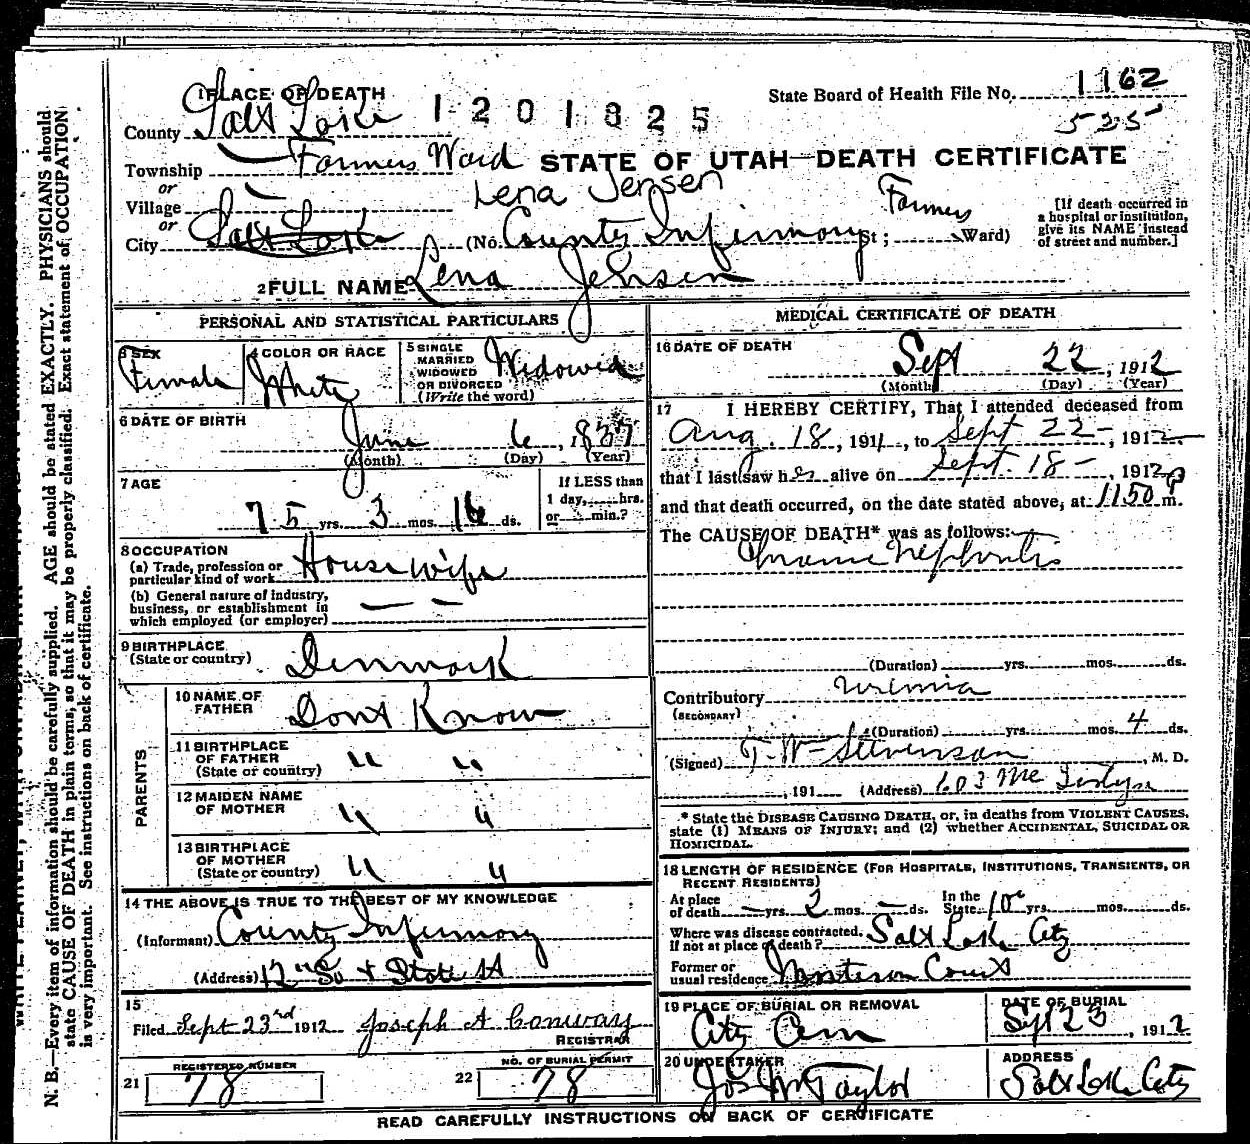 1 PLACE OF DEATH
County Salt Lake
1201825
State Board of Health File No. 1162
525
Township Farmers Ward
STATE OF UTAH—DEATH CERTIFICATE
or
Village
Lena Jensen
or
City Salt Lake (No. County Infirmary St; Farmers Ward)
[If death occurred in
a hospital or institution,
give its NAME instead
of street and number.]
2 FULL NAME Lena Jensen
PERSONAL AND STATISTICAL PARTICULARS
3 SEX
Female
4 COLOR OR RACE
White
5 SINGLE
MARRIED
WIDOWED
OR DIVORCED
(Write the word)
Widowed
6 DATE OF BIRTH
June 6, 1837
(Month) (Day) (Year)
7 AGE
75 yrs. 3 mos. 16 ds.
If LESS than
1 day, hrs.
or min.?
8 OCCUPATION
(a) Trade, profession or
particular kind of work Housewife
(b) General nature of industry,
business, or establishment in
which employed (or employer)
9 BIRTHPLACE
(State or country) Denmark
PARENTS
10 NAME OF
FATHER Dont Know
11 BIRTHPLACE
OF FATHER
(State or country) " "
12 MAIDEN NAME
OF MOTHER " "
13 BIRTHPLACE
OF MOTHER
(State or country) " "
14 THE ABOVE IS TRUE TO THE BEST OF MY KNOWLEDGE
(Informant) County Infirmary
(Address) 12" So & State St
15
Filed Sept 23rd 1912 Joseph A Conway
REGISTRAR
21 REGISTERED NUMBER
78
22 NO. OF BURIAL PERMIT
78
MEDICAL CERTIFICATE OF DEATH
16 DATE OF DEATH
Sept 22, 1912
(Month) (Day) (Year)
17 I HEREBY CERTIFY, That I attended deceased from
Aug. 18, 1911, to Sept 22-, 1912
that I last saw her alive on Sept. 18-, 1912
and that death occurred, on the date stated above, at 1150 p m.
The CAUSE OF DEATH* was as follows:
Chronic Nephritis
(Duration) yrs. mos. ds.
Contributory Uremia
(SECONDARY)
(Duration) yrs. mos. 4 ds.
(Signed) T. W. Stevenson, M. D.
, 191 (Address) 603
* State the DISEASE CAUSING DEATH, or, in deaths from VIOLENT CAUSES,
state (1) MEANS OF INJURY; and (2) whether ACCIDENTAL, SUICIDAL OR
HOMICIDAL.
18 LENGTH OF RESIDENCE (FOR HOSPITALS, INSTITUTIONS, TRANSIENTS, OR
RECENT RESIDENTS)
At place
of death — yrs. 2 mos. — ds.
In the
State yrs. mos. ds.
Where was disease contracted,
if not at place of death? Salt Lake City
Former or
usual residence Court
19 PLACE OF BURIAL OR REMOVAL
City Cem
DATE OF BURIAL
Sept 23, 1912
20 UNDERTAKER
Jos Wm Taylor
ADDRESS
Salt Lake City
READ CAREFULLY INSTRUCTIONS ON BACK OF CERTIFICATE
N. B.—Every item of information should be carefully supplied. AGE should be stated EXACTLY. PHYSICIANS should
state CAUSE OF DEATH in plain terms, so that it may be properly classified. Exact statement of OCCUPATION
is very important. See instructions on back of certificate.